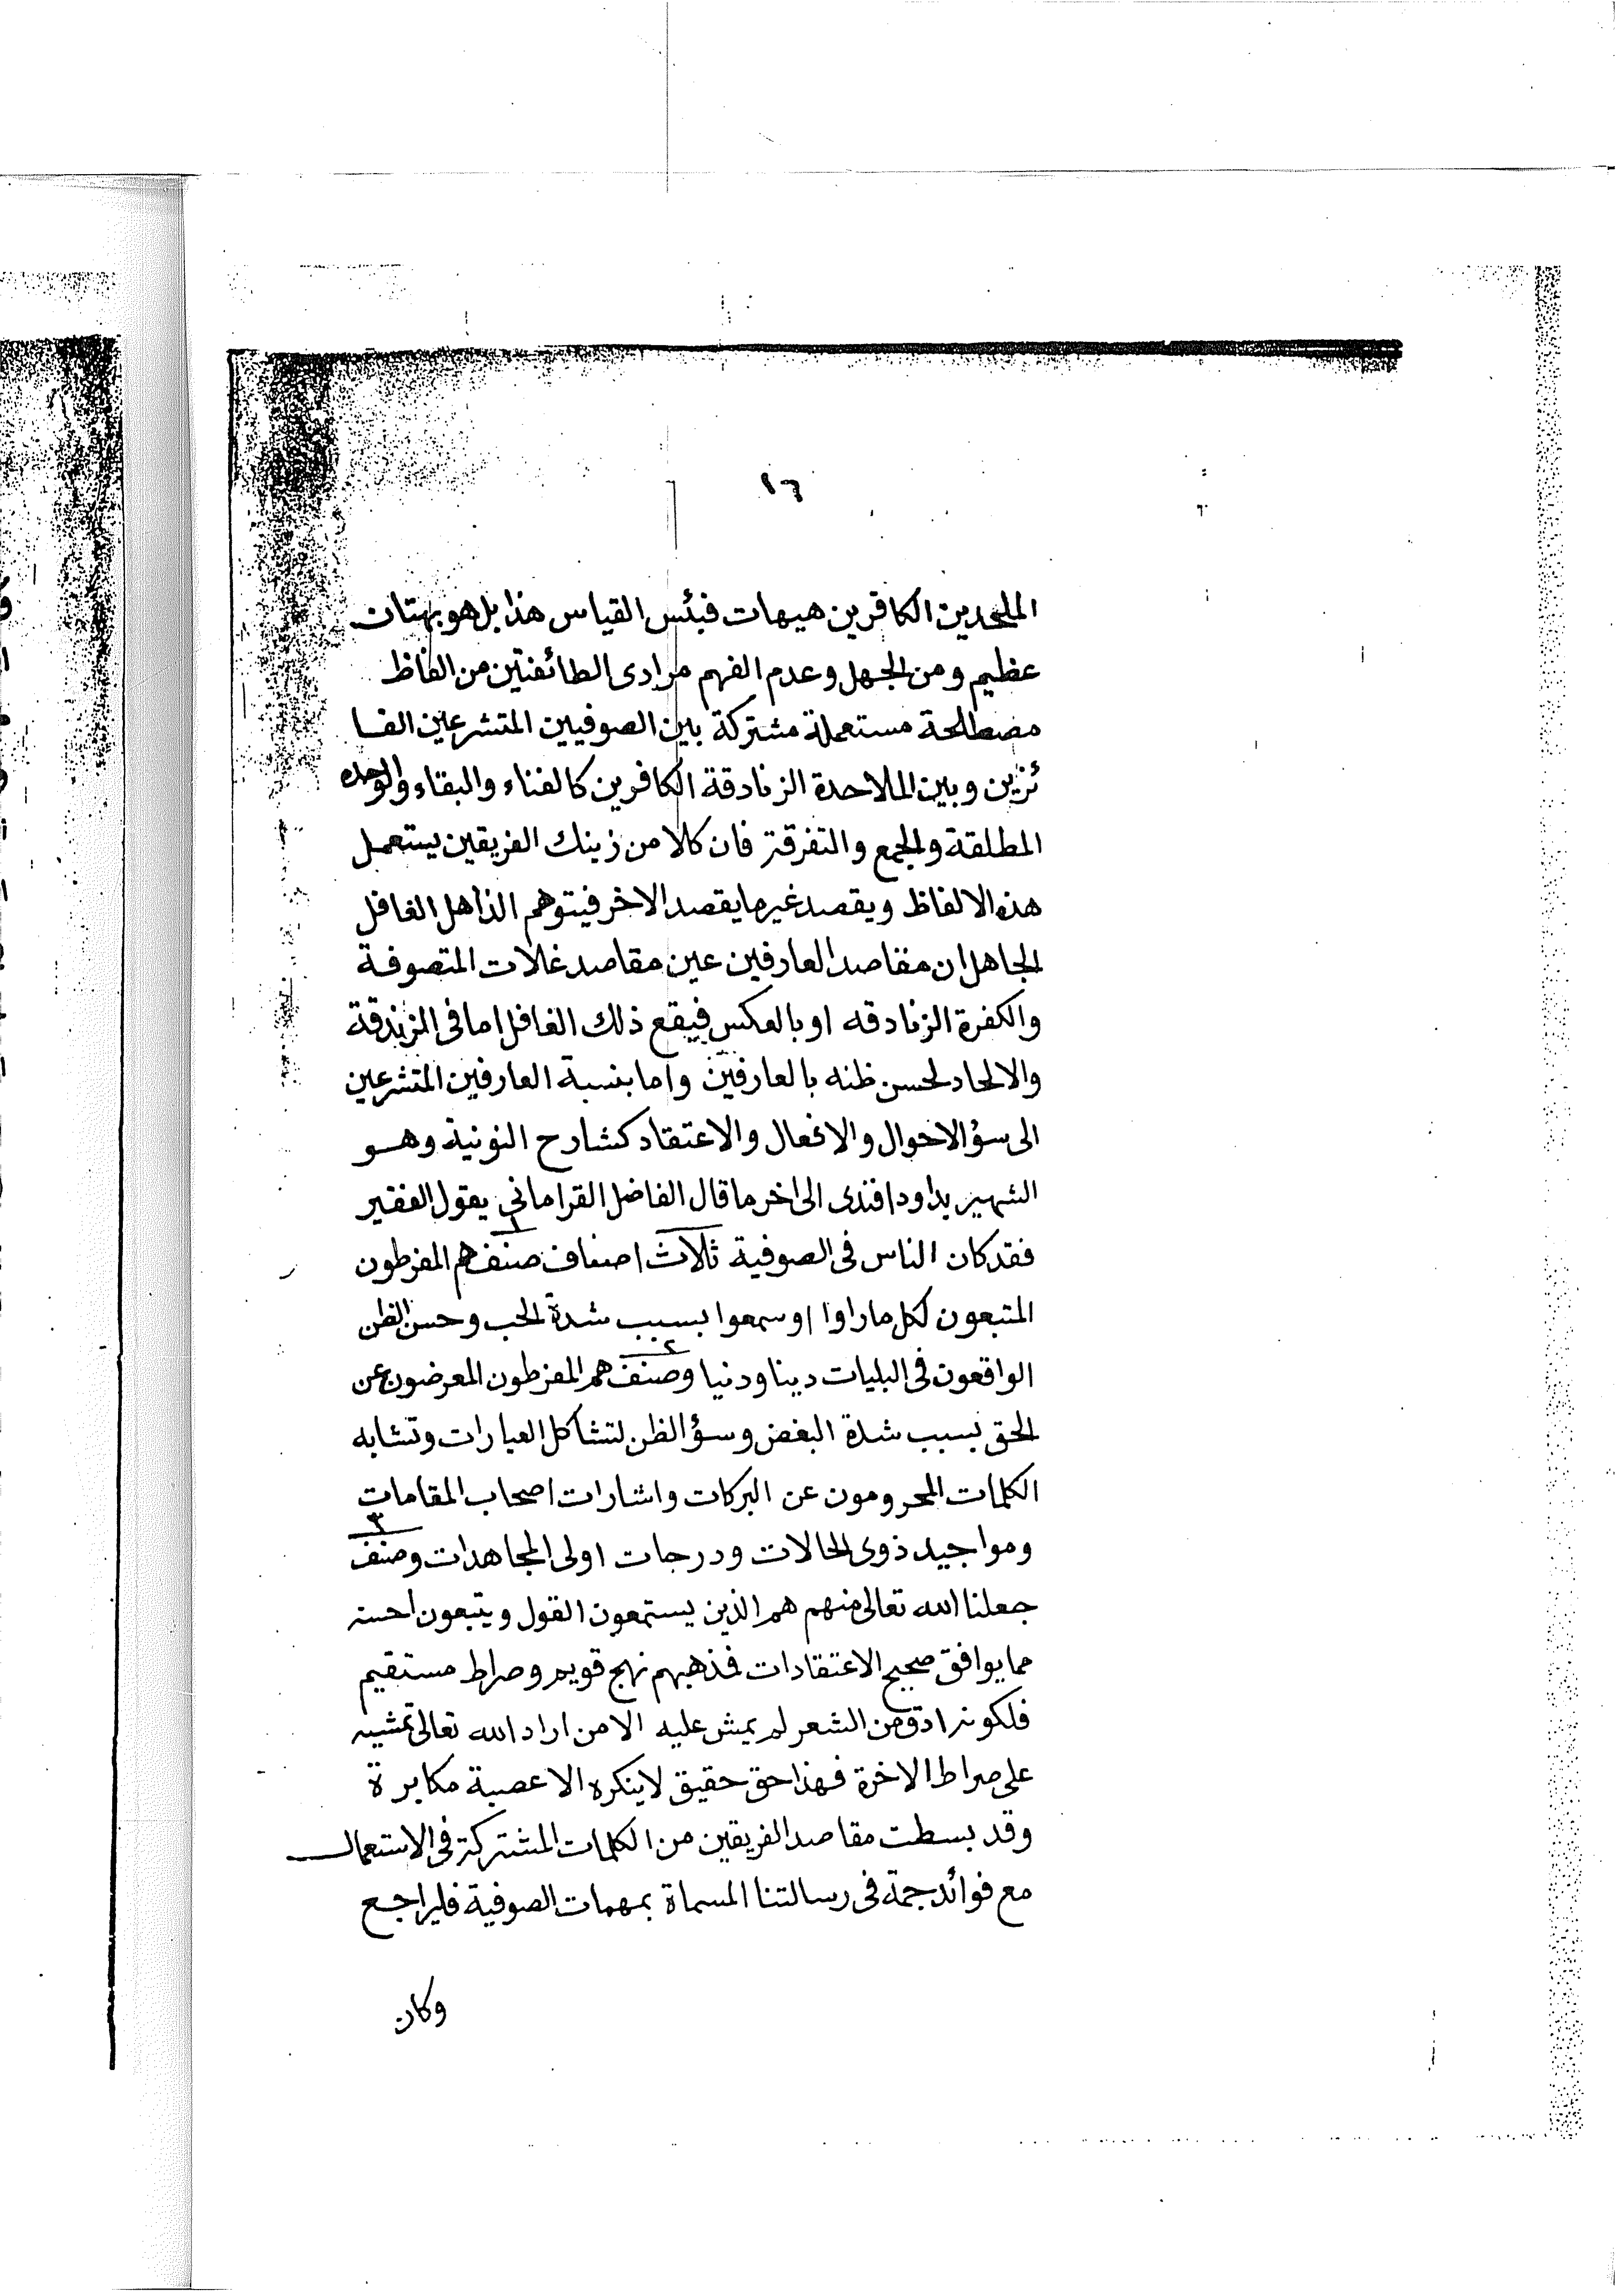 ١٦
الملحدين الكافرين هيهات فبئس القياس هذا بل هو بهتان
عظيم ومن الجهل وعدم الفهم مرادى الطائفتين من الفاظ
مصطلحة مستعملة مشتركة بين الصوفيين المتشرعين الفا
ئزين وبين الملاحدة الزنادقة الكافرين كالفناء والبقاء والوحدة
المطلقة والجمع والتفرقة فان كلا من زينك الفريقين يستعمل
هذه الالفاظ ويقصد غير ما يقصد الاخر فيتوهم الذاهل الغافل
الجاهل ان مقاصد العارفين عين مقاصد غلات المتصوفة
والكفرة الزنادقه او بالعكس فيقع ذلك الغافل اما فى الزندقة
والالحاد لحسن ظنه بالعارفين واما بنسبة العارفين المتشرعين
الى سؤ الاحوال والافعال والاعتقاد كشارح النونية وهو
الشهير بداود افندى الى اخر ما قال الفاضل القرامانى يقول الفقير
فقد كان الناس فى الصوفية ثلاث اصناف صنف ١ هم المفرطون
المتبعون لكل ما راوا او سمعوا بسبب شدة الحب وحسن الظن
الواقعون فى البليات دينا ودنيا وصنف ٢ هم المفرطون المعرضون عن
الحق بسبب شدة البغض وسؤ الظن لتشاكل العبارات وتشابه
الكلمات المحرومون عن البركات واشارات اصحاب المقامات
ومواجيد ذوى الحالات ودرجات اولى المجاهدات وصنف ٣
جعلنا الله تعالى منهم هم الذين يستمعون القول ويتبعون احسنه
مما يوافق صحيح الاعتقادات فمذهبهم نهج قويم وصراط مستقيم
فلكونه ادق من الشعر لم يمش عليه الا من اراد الله تعالى تمشيه
على صراط الاخرة فهذا حق حقيق لا ينكره الا عصبة مكابرة
وقد بسطت مقاصد الفريقين من الكلمات المشتركة فى الاستعمال
مع فوائد جمة فى رسالتنا المسماة بمهمات الصوفية فليراجع
وكان